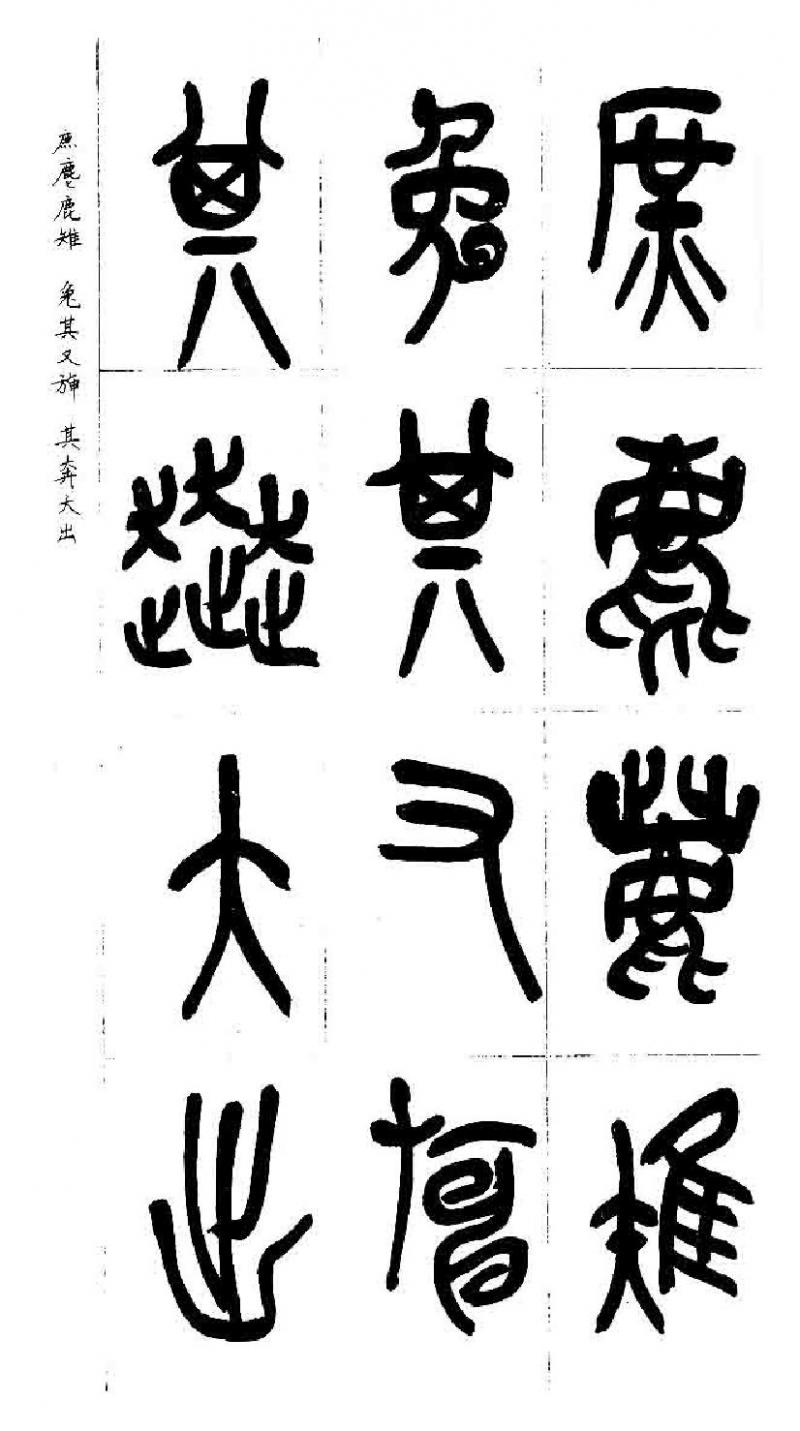 庶麀鹿雉
兔其又旃
其奔大出
庶麀鹿雉 兔其又旃 其奔大出